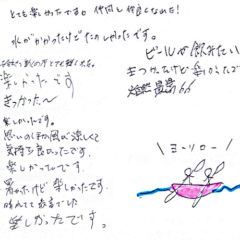 とても楽しかったです。仲間と仲良くなれた!
水がかかったけどたのしかったです。
ビールが飲みたい
楽しかったです
きつかったけど楽しかったで
きつかった〜
自然最高
楽しかったです。
思いのほか風が涼しくて
気持ち良かったです
楽しかったです。
暑かったけど楽しかったです。
\ヨーソロー/
楽しかったです。